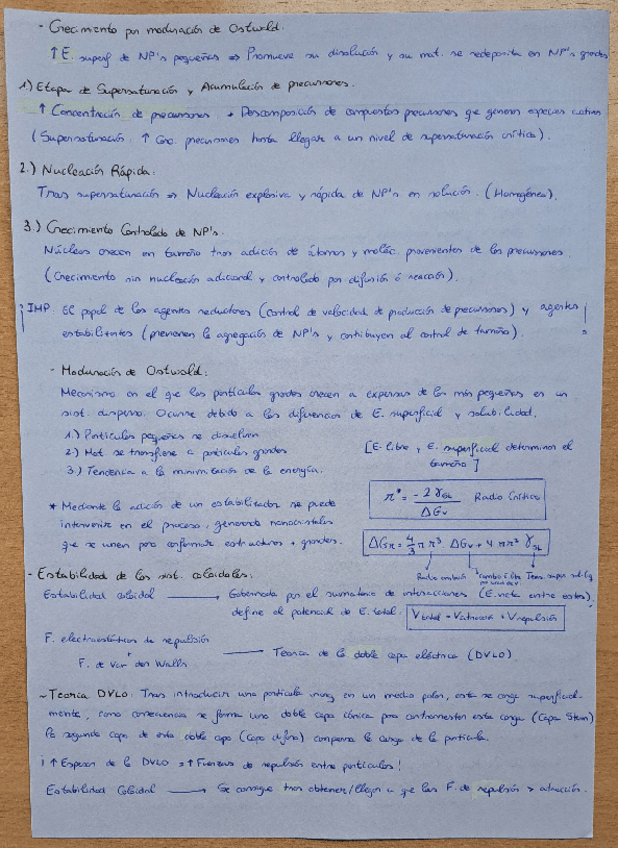 - Crecimiento por maduración de Ostwald.
↑ E. superf de NP's pequeñas ⇒ Promueve su disolución y su mat. se redeposita en NP's grandes
1) Etapa de Supersaturación y Acumulación de precursores.
↑ Concentración de precursores + Descomposición de compuestos precursores que generan especies activas
(Supersaturación: ↑ Conc. precursores hasta llegar a un nivel de supersaturación crítica).
2.) Nucleación Rápida:
Tras supersaturación ⇒ Nucleación explosiva y rápida de NP's en solución. (Homogénea).
3.) Crecimiento Controlado de NP's.
Núcleos crecen en tamaño tras adición de átomos y moléc. provenientes de los precursores.
(Crecimiento sin nucleación adicional y controlado por difusión ó reacción).
¡IMP. El papel de los agentes reductores (control de velocidad de producción de precursores) y agentes
estabilizantes (previenen la agregación de NP's y contribuyen al control de tamaño). !
- Maduración de Ostwald:
Mecanismo en el que las partículas grandes crecen a expensas de las más pequeñas en un
sist. disperso. Ocurre debido a las diferencias de E. superficial y solubilidad.
1.) Partículas pequeñas se disuelven
2.) Mat se transfiere a partículas grandes
3.) Tendencia a la minimización de la energía.
[E. libre y E. superficial determinan el
tamaño]
r* = -2γSL / ΔGv Radio Crítico
* Mediante la adición de un estabilizador se puede
intervenir en el proceso, generando nanocristales
que se unen para conformar estructuras + grandes.
ΔGr = 4/3 π r³ ΔGv + 4πr² γSL
Radio embrión Cambio E. libre por unid. vol. Tens. super sól-líq
- Estabilidad de los sist. coloidales:
Estabilidad coloidal → Gobernada por el sumatorio de interacciones (E. neta entre estas),
define el potencial de E. total. Vtotal = Vatracción + Vrepulsión
F. electroestáticas de repulsión
+
F. de Van der Walls → Teoría de la doble capa eléctrica (DVLO).
~ Teoría DVLO: Tras introducir una partícula inorg en un medio polar, esta se carga superficial-
mente, como consecuencia se forma una doble capa iónica para contrarrestar esta carga (Capa Stern)
La segunda capa de esta doble capa (Capa difusa) compensa la carga de la partícula.
¡ ↑ Espesor de la DVLO ⇒ ↑ Fuerzas de repulsión entre partículas!
Estabilidad Coloidal → Se consigue tras obtener/llegar a que las F. de repulsión > atracción.